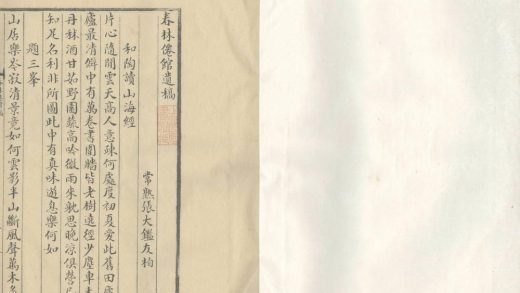 春林僊館遺稿
常熟張大鑑友柏
和陶讀山海經
片心隨閒雲天高人意疎何處度初夏愛此舊田廬
廬最清僻中有萬卷書園牆皆老樹遠徑少塵車
丹秫酒甘茹野園蔬高吟微雨來
思晚涼俱
知足名利非所圖此中有真味遊息樂何如
題三峯
山居樂岑寂清景竟如何雲影半山斷風聲萬木多